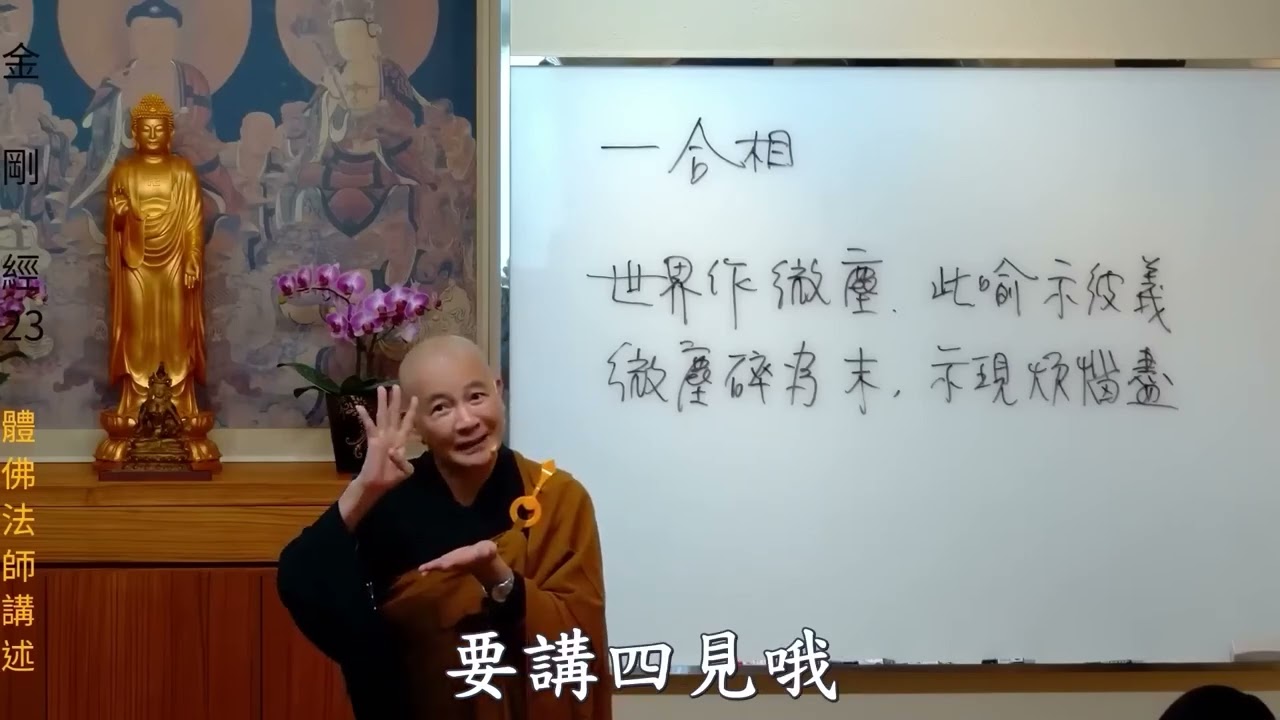 金剛經23
體佛法師講述
一合相
世界作微塵、此喻示彼義
微塵碎為末，示現煩惱盡
要講四見哦